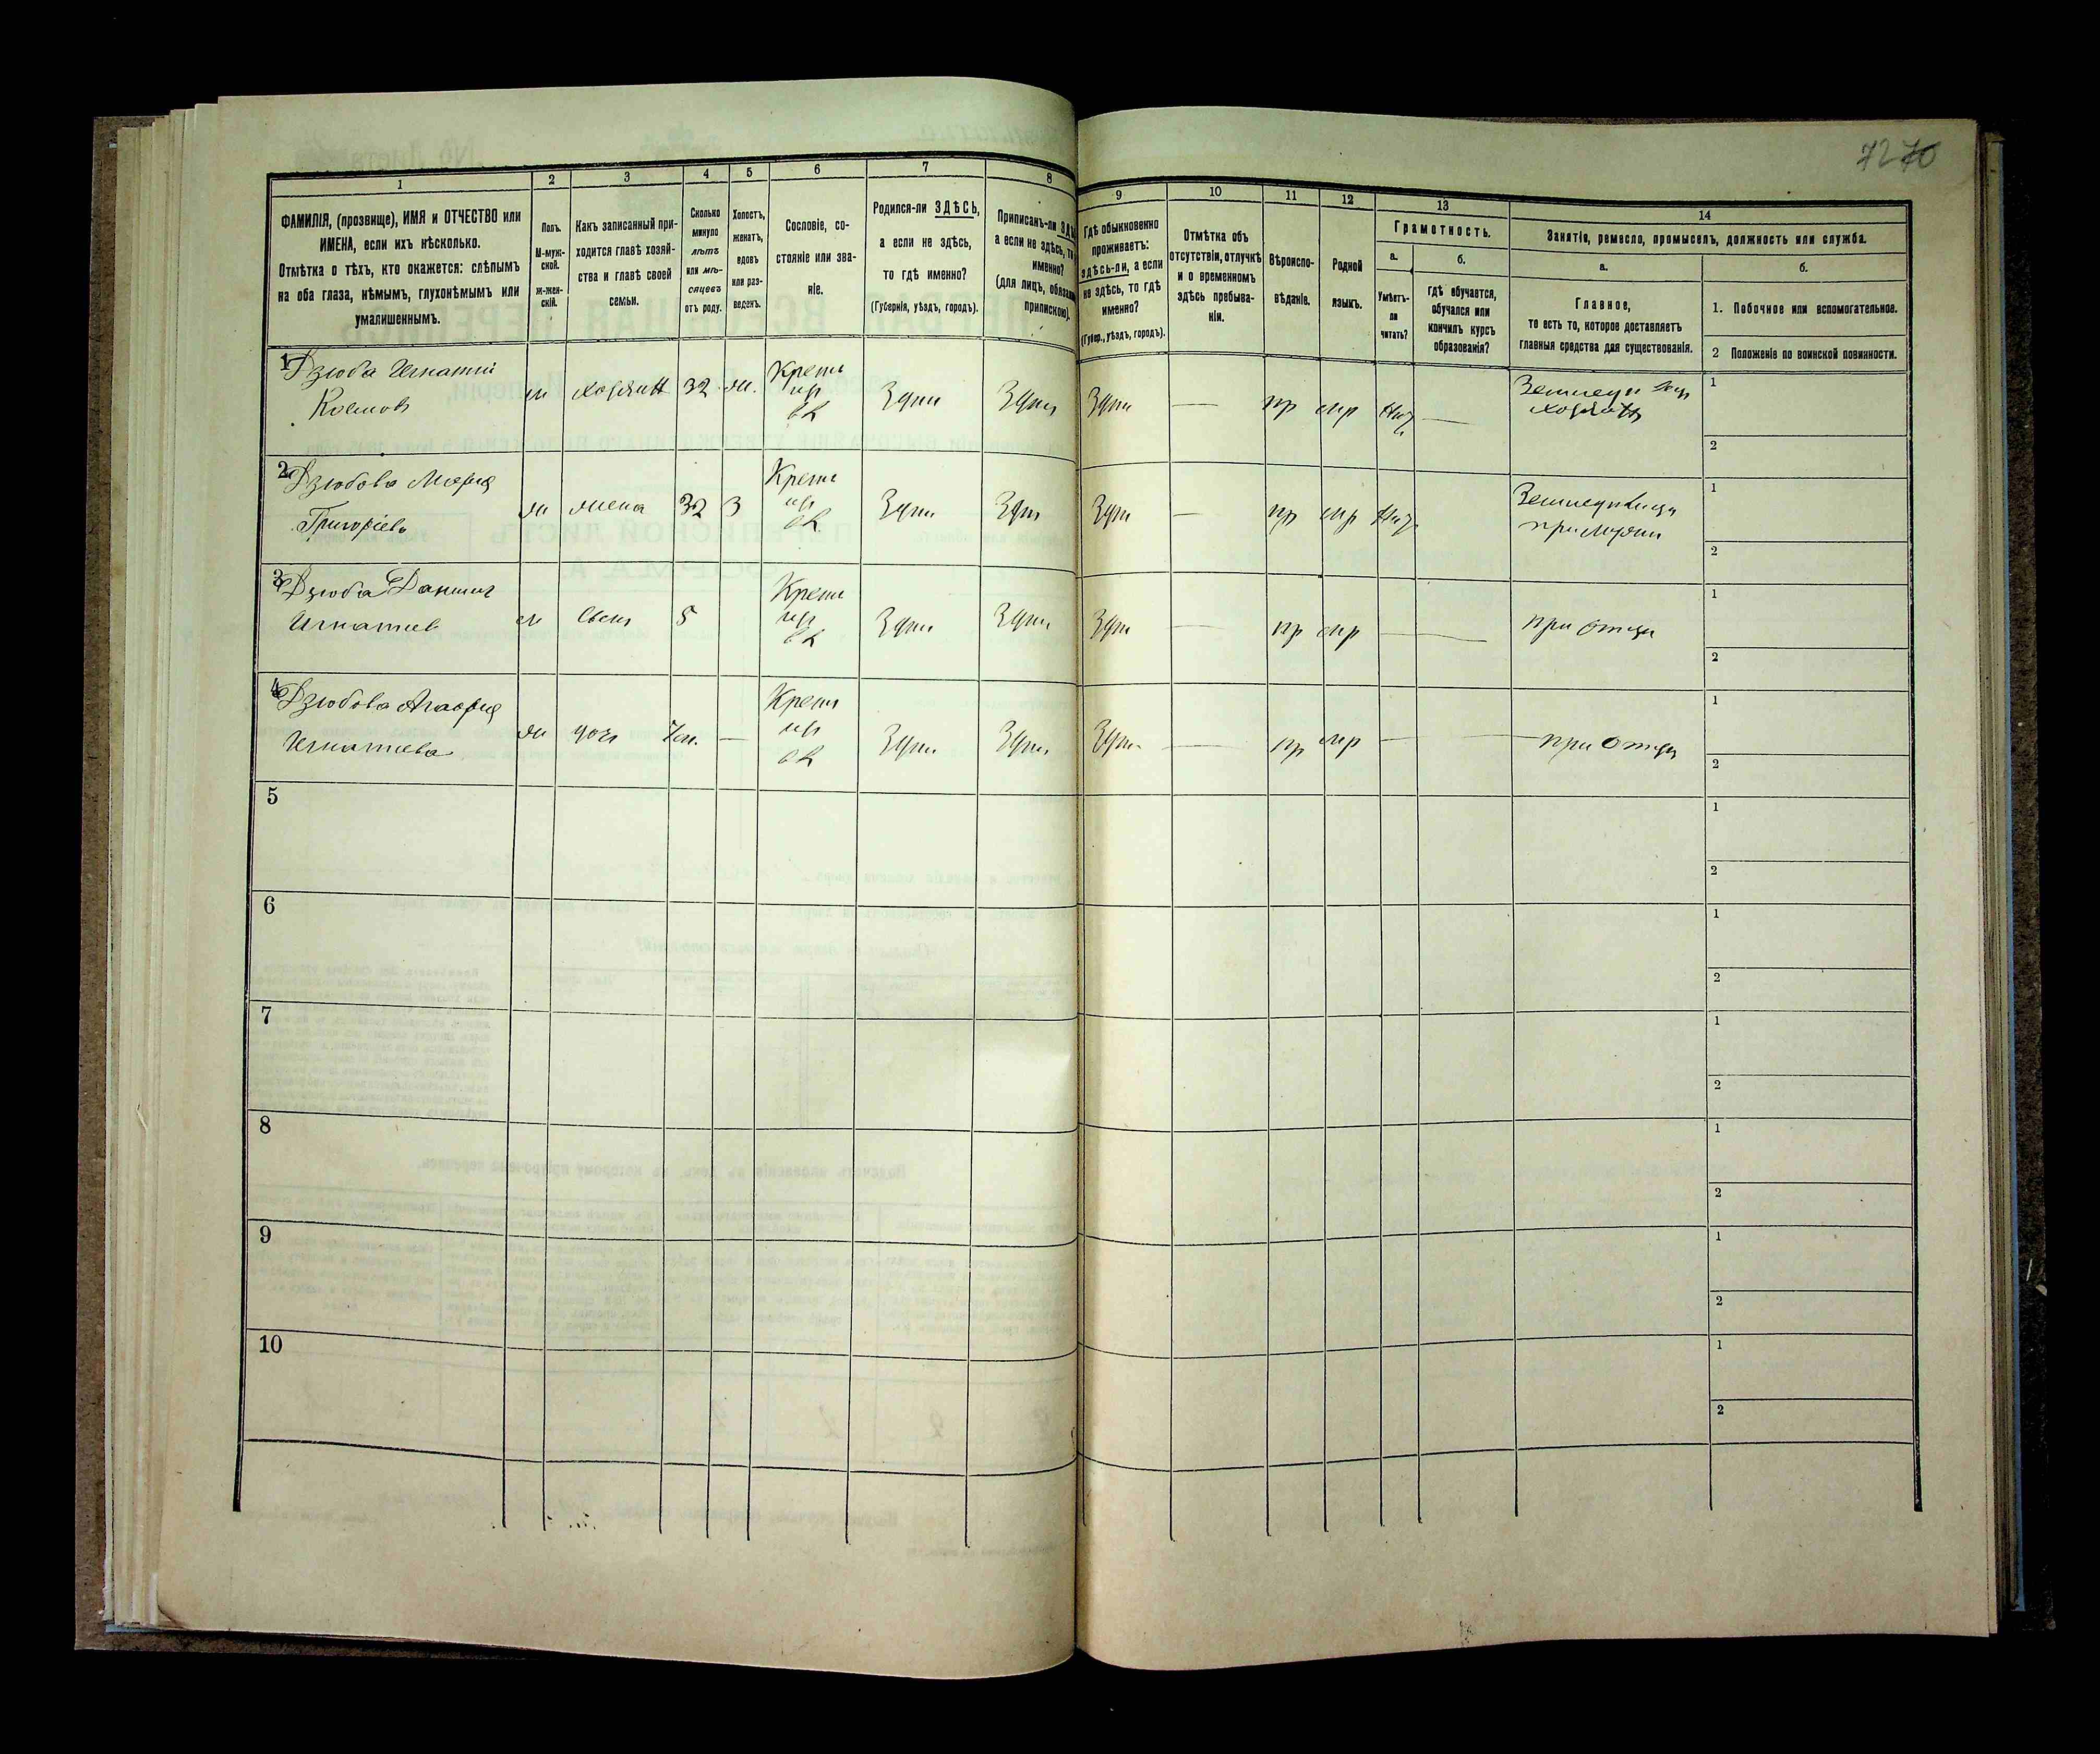 7270
1
2
3
4
5
6
7
8
9
10
11
12
13
14
ФАМИЛІЯ, (прозвище), ИМЯ и ОТЧЕСТВО или
ИМЕНА, если ихъ нѣсколько.
Отмѣтка о тѣхъ, кто окажется: слѣпымъ
на оба глаза, нѣмымъ, глухонѣмымъ или
умалишеннымъ.
Полъ.
М-муж-
ской.
ж-жен-
скій.
Какъ записанный при-
ходится главѣ хозяй-
ства и главѣ своей
семьи.
Сколько
минуло
лѣтъ
или мѣ-
сяцевъ
отъ роду.
Холостъ,
женатъ,
вдовъ
или раз-
веденъ.
Сословіе, со-
стояніе или зва-
ніе.
Родился-ли ЗДѢСЬ,
а если не здѣсь,
то гдѣ именно?
(Губернія, уѣздъ, городъ).
Приписанъ-ли
а если не здѣсь,
именно?
(для лицъ,
припискою).
Гдѣ обыкновенно
проживаетъ:
здѣсь-ли, а если
не здѣсь, то гдѣ
именно?
(Губер., уѣздъ, городъ).
Отмѣтка объ
отсутствіи, отлучкѣ
и о временномъ
здѣсь пребыва-
ніи.
Вѣроиспо-
вѣданіе.
Родной
языкъ.
Грамотность.
а.
Умѣетъ-
ли
читать?
б.
гдѣ обучается,
обучался или
кончилъ курсъ
образованія?
Занятіе, ремесло, промыселъ, должность или служба.
а.
Главное,
то есть то, которое доставляетъ
главныя средства для существованія.
б.
1. Побочное или вспомогательное.
2 Положеніе по воинской повинности.
1 Дзюба Игнатій
м хозяин 32 ж. Крест
Здѣсь Здѣсь Здѣсь — пр мр —
хозяин
1
2
2 Дзюбова Мария
Григоріева
ж жена 32 З Крест
Здѣсь Здѣсь Здѣсь — пр мр
при мужи
1
2
3 Дзюба Данил
Игнатиев
м сын 5 Крест
Здѣсь Здѣсь Здѣсь — пр мр — —
при отци
1
2
4 Дзюбова
Игнатиева
ж доч — Крест
Здѣсь Здѣсь Здѣсь — пр мр — —
при отци
1
2
5
1
2
6
1
2
7
1
2
8
1
2
9
1
2
10
1
2